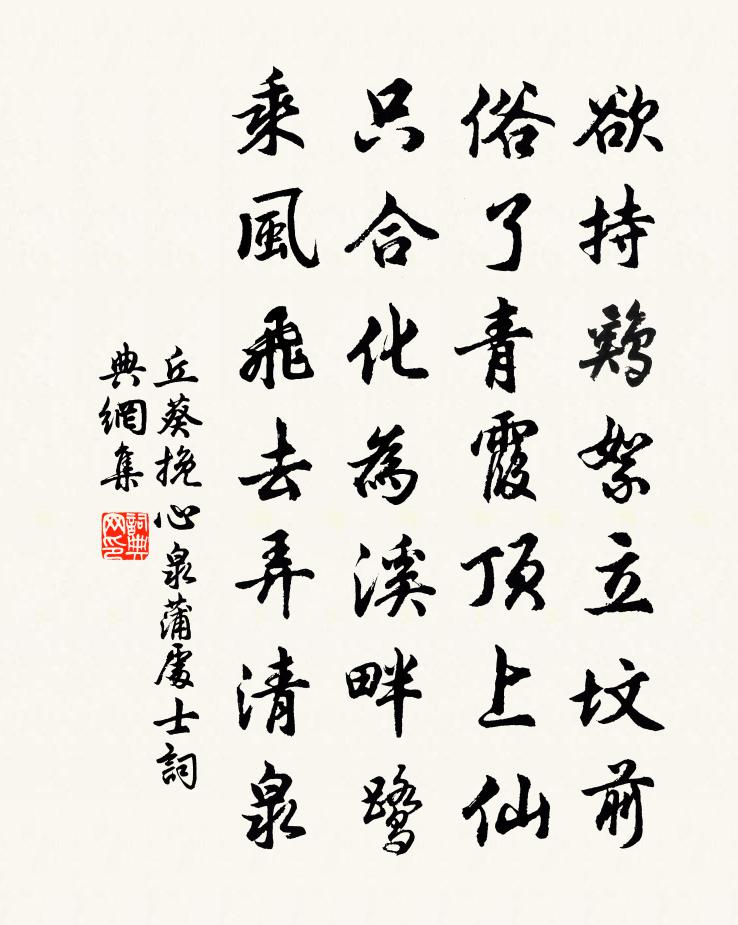 欲持鷄絮立坟前
俗了青霞頂上仙
只合化為溪畔鷺
乘風飛去弄清泉
丘葵挽心泉蒲處士詞
典網集
詞典
网印